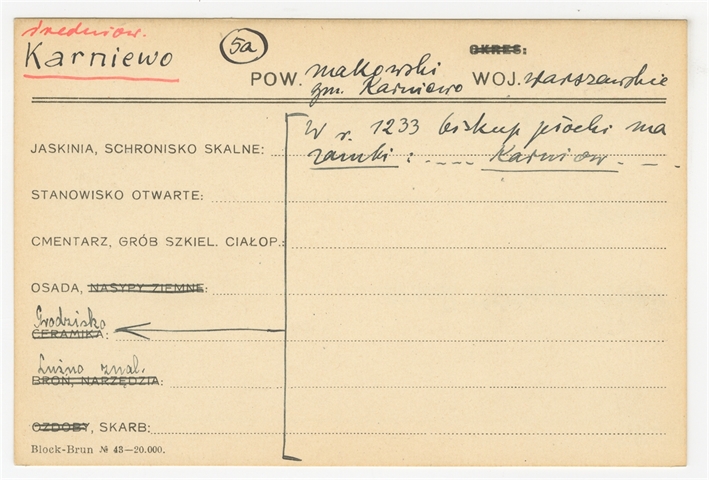 średniow.
Karniewo
5a
OKRES:
POW. makowski
gm. Karniewo
WOJ. warszawskie
W r. 1233 biskup płocki ma
zamki: . - - - - Karniow. - - -
JASKINIA, SCHRONISKO SKALNE:
STANOWISKO OTWARTE:
CMENTARZ, GRÓB SZKIEL. CIAŁOP.:
OSADA, NASYPY ZIEMNE:
Grodzisko
CERAMIKA:
Luźno znal.
BROŃ, NARZĘDZIA:
OZDOBY, SKARB:
Block-Brun № 43—20.000.